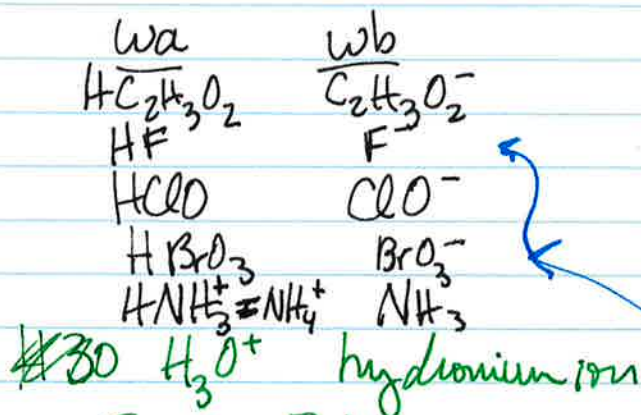 wa wb
HC₂H₃O₂ C₂H₃O₂⁻
HF F⁻
HClO ClO⁻
HBrO₃ BrO₃⁻
HNH₃⁺ = NH₄⁺ NH₃
#30 H₃O⁺ hydronium ion